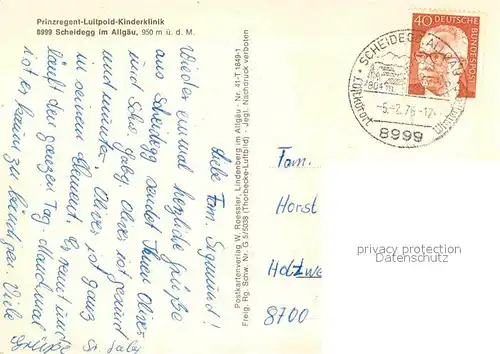 Prinzregent-Luitpold-Kinderklinik
8999 Scheidegg im Allgäu, 950 m ü. d. M.
Liebe Fam. Siegmund!
Wieder einmal herzliche Grüße
aus Scheidegg sendet Ihnen Oliver
und Schw. Gaby. Oliver ist gesund
und munter. Oliver ist ganz
in seinem Element. Er rennt und
läuft den ganzen Tag. Manchmal
ist er kaum zu bändigen. Viele
Grüße Sr. Gaby
Postkartenverlag W. Roessler, Lindenberg im Allgäu · Nr. 41-T 1849-1
Freig. Rg. Schw. Nr. G 5/5038 (Thorbecke-Luftbild) · Jegl. Nachdruck verboten
40 DEUTSCHE
BUNDESPOST
SCHEIDEGG ALLGÄU
804 m
-5.-2.76-12
Luftkurort
8999
Fam.
Horst
Holzwe
8700
privacy protection
Datenschutz